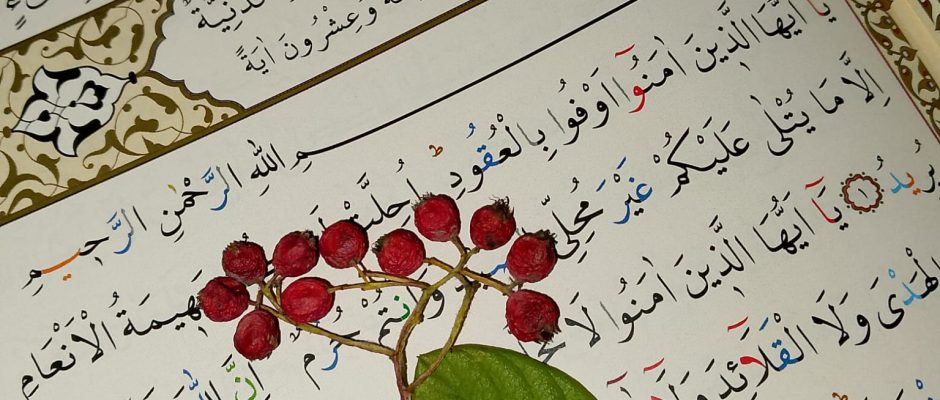 وَعِشْرُونَ اٰيَةً
بِسْمِ اللّٰهِ الرَّحْمٰنِ الرَّحِيمِ
يَٓا اَيُّهَا الَّذِينَ اٰمَنُٓوا اَوْفُوا بِالْعُقُودِۜ اُحِلَّتْ بَهِيمَةُ الْاَنْعَامِ
اِلَّا مَا يُتْلٰى عَلَيْكُمْ غَيْرَ مُحِلِّي وَاَنْتُمْ حُرُمٌ اِنَّ
يُرِيدُ ﴿١﴾ يَٓا اَيُّهَا الَّذِينَ اٰمَنُوا لَا
الْهَدْيَ وَلَا الْقَلَٓائِدَ وَلَٓا